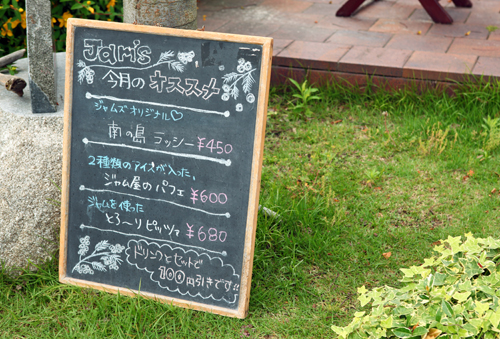 Jam's
今月のオススメ
ジャムズオリジナル♡
南の島ラッシー ¥450
2種類のアイスが入った、
ジャム屋のパフェ ¥600
ジャムを使った
とろ〜りピッツァ ¥680
ドリンクとセットで
100円引きです!!